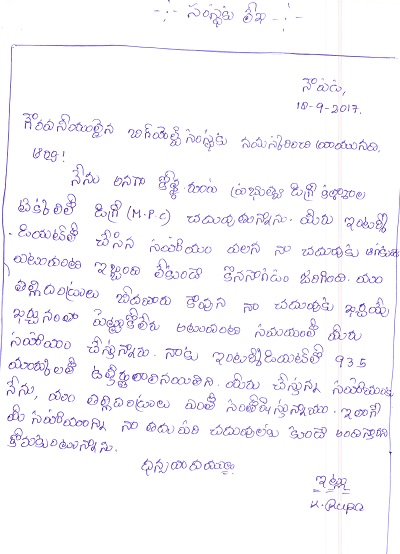 -:- సంస్థకు లేఖ -:-
నౌపడ,
18-9-2017.
గౌరవనీయులైన సంస్థకు నమస్కరించి వ్రాయునది.
నేను అనగా ప్రభుత్వ డిగ్రీ కళాశాల
టెక్కలిలో డిగ్రీ (M.P.C) చదువుతున్నాను. మీరు ఇంటర్మీ
డియట్‌లో చేసిన సహాయం వలన నా చదువుకు
ఎటువంటి ఇబ్బంది లేకుండా కొనసాగడం జరిగింది. మా
తల్లిదండ్రులు బీదవారు కావున నా చదువుకు
ఖర్చునంతా పెట్టుకోలేరు అటువంటి సమయంలో మీరు
సహాయం చేస్తున్నారు. నాకు ఇంటర్మీడియట్‌లో 935
మార్కులతో ఉత్తీర్ణురాలినయితిని. మీరు చేస్తున్న సహాయంకు
నేను, మా తల్లిదండ్రులు ఎంతో సంతోషిస్తున్నాము. ఇలానే
మీ సహాయాన్ని నా తదుపరి చదువులకు కూడా అందిస్తారని
కోరుకుంటున్నాను.
ధన్యవాదములు
ఇట్లు
K. Rupa